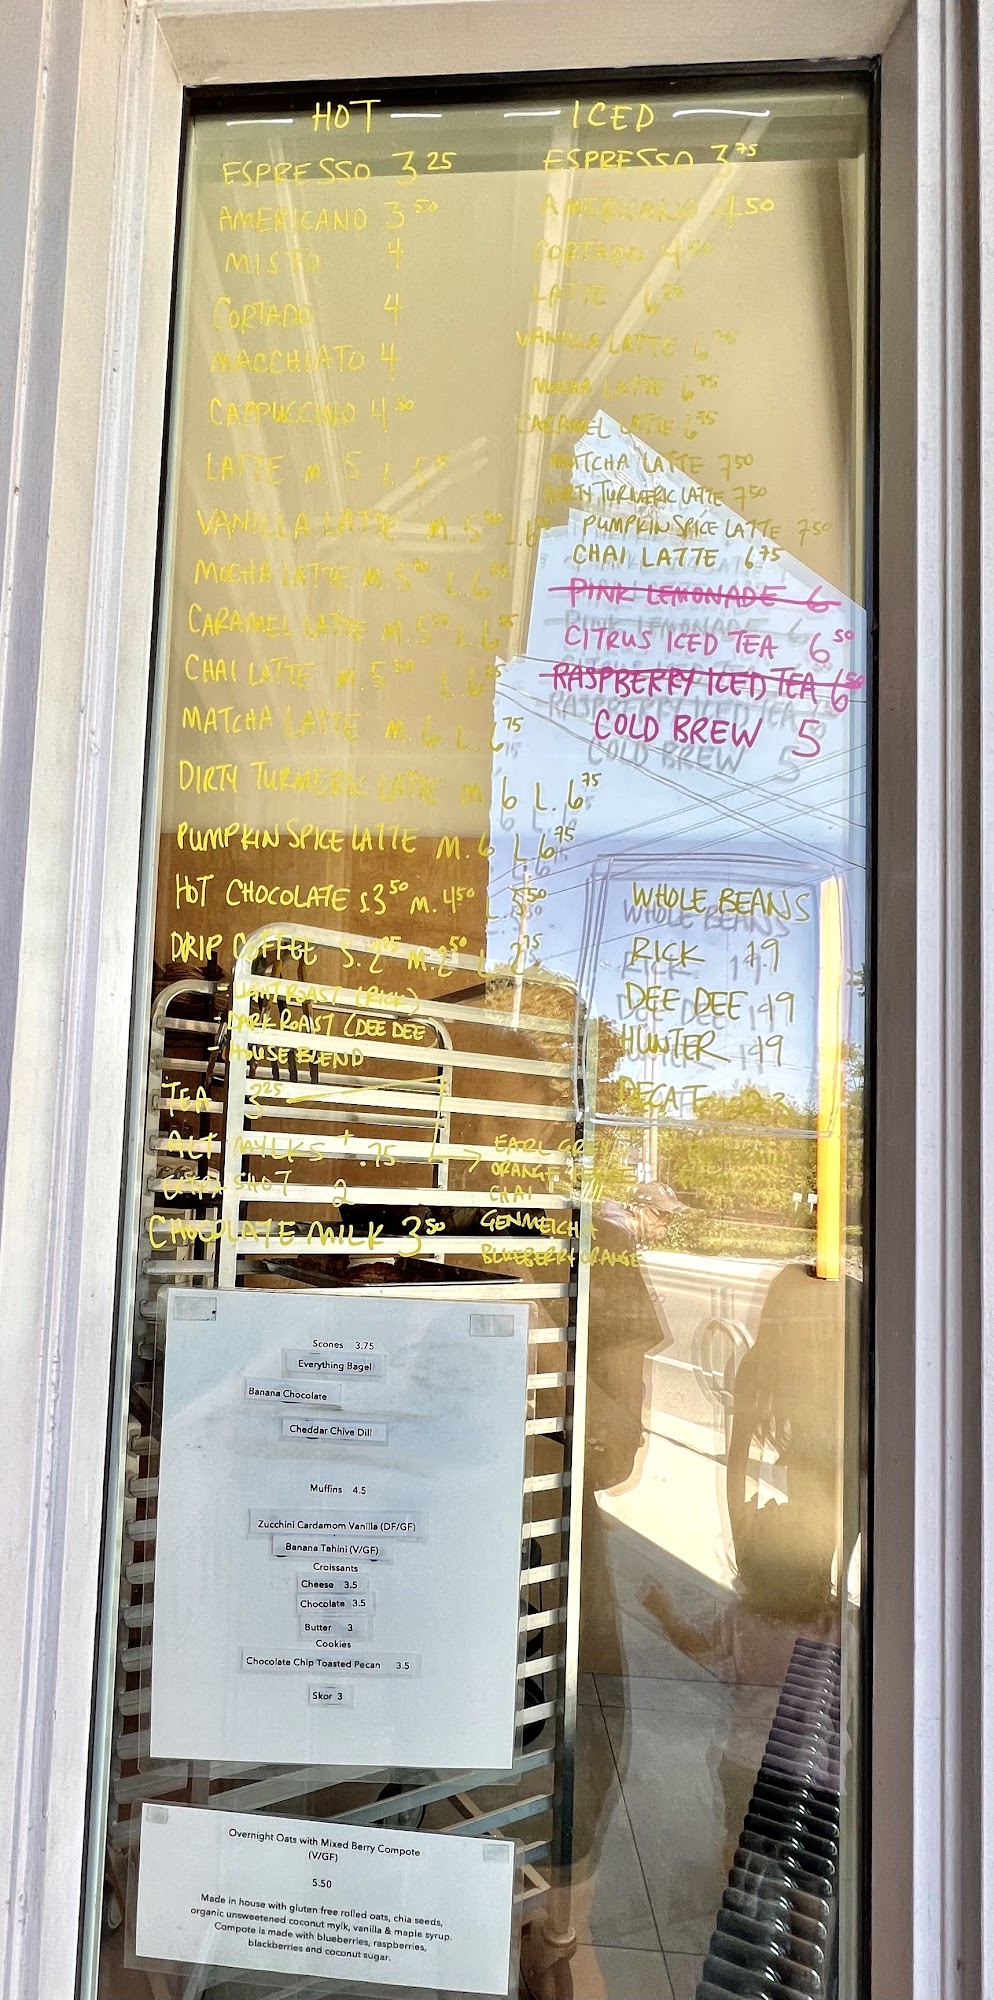 HOT
ESPRESSO 3 25
AMERICANO 3 50
MISTO 4
CORTADO 4
MACCHIATO 4
CAPPUCCINO 4 50
LATTE M. 5 L. 5
VANILLA LATTE M. 5 L. 6
MOCHA LATTE M. 5 L. 6
CARAMEL LATTE M. 5 L. 6
CHAI LATTE M. 5 50 L. 6
MATCHA LATTE M. 6 L. 6 75
DIRTY TURMERIC LATTE M. 6 L. 6 75
PUMPKIN SPICE LATTE M. 6 L. 6 75
HOT CHOCOLATE S 3 50 M. 4 50 L. 5 50
DRIP COFFEE S. 2 25 M. 2 50 L. 2 75
- LIGHT ROAST (RICK)
- DARK ROAST (DEE DEE
- HOUSE BLEND
TEA 3 25
ALT MYLKS + .75
EXTRA SHOT 2
CHOCOLATE MILK 3 50
EARL GREY
ORANGE
CHAI
GENMEICHA
BLUEBERRY ORANGE
ICED
ESPRESSO 3 75
AMERICANO 4 50
CORTADO 4 50
LATTE 6
VANILLA LATTE 6 75
MOCHA LATTE 6 75
CARAMEL LATTE 6 75
MATCHA LATTE 7 50
DIRTY TURMERIC LATTE 7 50
PUMPKIN SPICE LATTE 7 50
CHAI LATTE 6 75
PINK LEMONADE 6
CITRUS ICED TEA 6 50
RASPBERRY ICED TEA 6 50
COLD BREW 5
WHOLE BEANS
RICK 19
DEE DEE 19
HUNTER 19
DECAF 23
Scones 3.75
Everything Bagel
Banana Chocolate
Cheddar Chive Dill
Muffins 4.5
Zucchini Cardamom Vanilla (DF/GF)
Banana Tahini (V/GF)
Croissants
Cheese 3.5
Chocolate 3.5
Butter 3
Cookies
Chocolate Chip Toasted Pecan 3.5
Skor 3
Overnight Oats with Mixed Berry Compote
(V/GF)
5.50
Made in house with gluten free rolled oats, chia seeds,
organic unsweetened coconut mylk, vanilla & maple syrup.
Compote is made with blueberries, raspberries,
blackberries and coconut sugar.